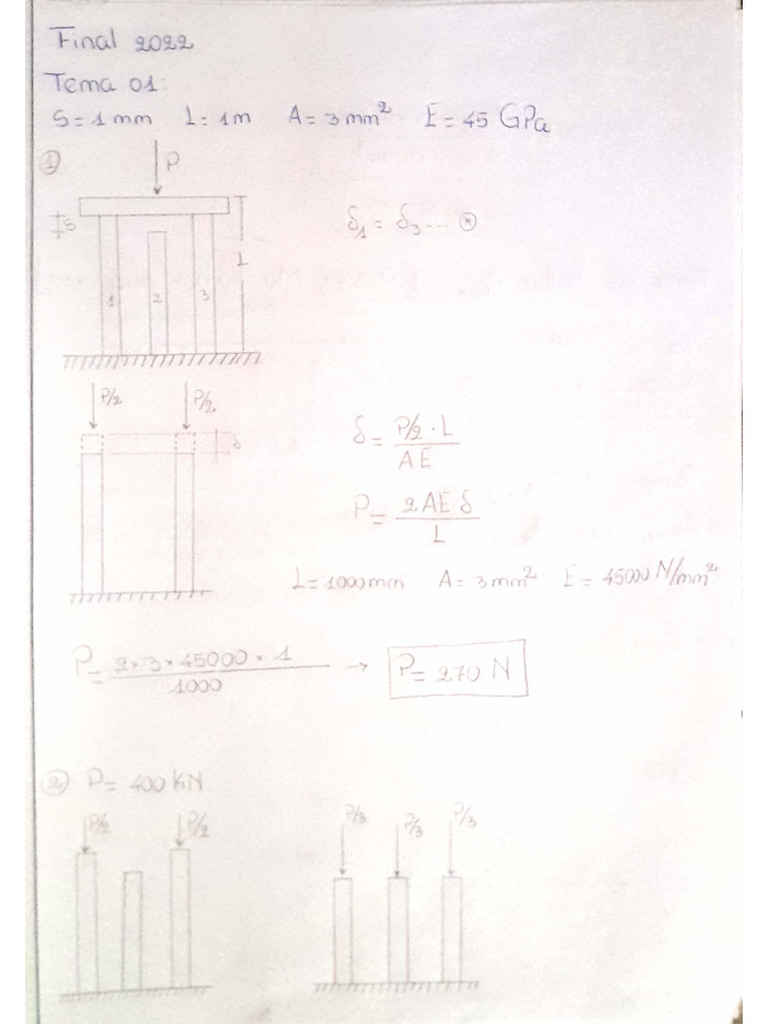 Final 2022
Tema 01:
S=1mm L=1m A=3mm² E=45 GPa
① P
S
δ₁ = δ₃... ⊛
L
1 2 3
P/2 P/2
δ
δ = P/2 · L / AE
P = 2AE δ / L
L=1000mm A=3mm² E=45000 N/mm²
P= 2×3×45000×1 / 1000 → P=270 N
② P= 400 KN
P/2 P/2 P/3 P/3 P/3